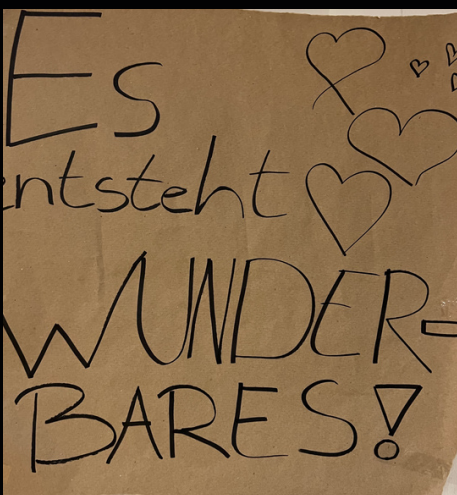 Es
entsteht
WUNDER-
BARES!